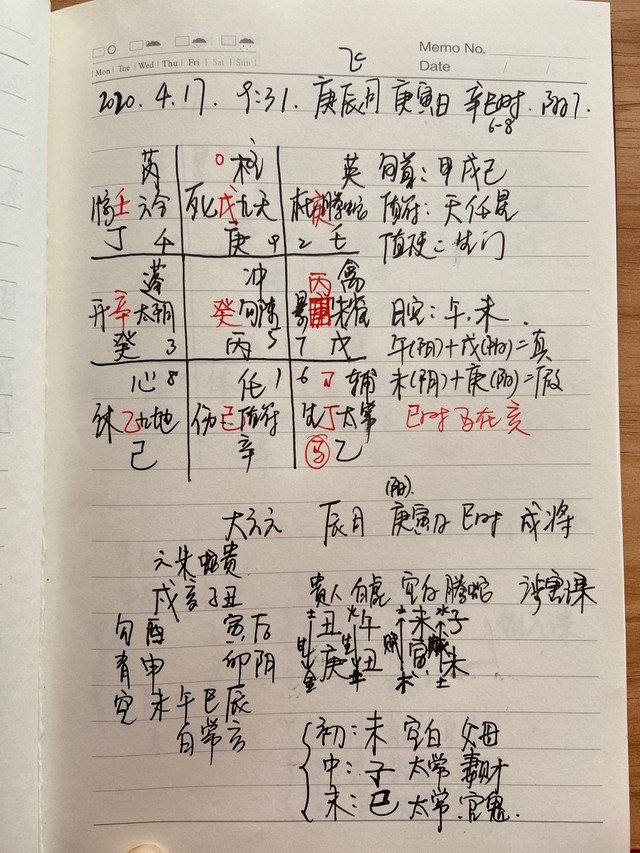 Memo No.
Mon Tue Wed Thu Fri Sat Sun
Date / /
2020.4.17. 9:31. 庚辰月 庚寅日 辛巳时. 阳7.
6-8
芮 柱 英 旬首: 甲戌己
壬 六合 死 戊 九天 杜 庚 腾蛇 值符: 天任星
丁 4 庚 9 2 壬 值使: 生门
蓬 冲 丙 禽
开 辛 太阴 癸 勾陈 景 朱雀 日空: 午, 未.
癸 3 丙 5 7 戊 午(阳)+戊(阳)=真
心 8 任 1 6 辅 未(阴)+庚(阳)=假
休 乙 九地 伤 己 值符 生 丁 太常 巳时马在亥
己 辛 马 乙
(阳).
大六壬 辰月 庚寅日 巳时 戌将
六朱蛇贵
戌亥子丑 贵人 白虎 空白 腾蛇 涉害课
勾酉 寅后 丑 午 未 子
青申 卯阴 庚 丑 寅 未
空未午巳辰
白常玄
初: 未 空白 父母
中: 子 太常 妻财
末: 巳 太常 官鬼.